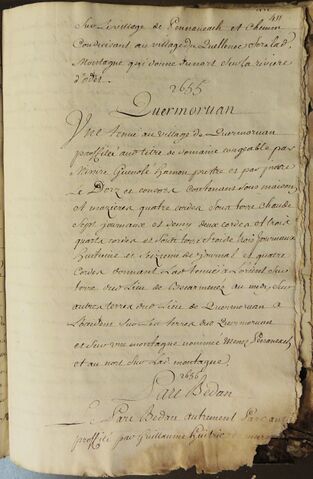 411
Sur le village de Pennaneach et Chemin
Conduisant au village du Quellenec sur lad
Montagne qui donne du nort sur la riviere
d'odet.
2655
Quermoruan
Une tenue au village de Quermoruan
proffitée au titre de domaine congeable par
Missire Guenole Hamon prettre et par
Le Derz et consors Contenant sous maison
et mazieres quatre cordes sous terre chaude
Sept journaux et demy deux cordes et trois
quarts cordes et soubs terre froide trois journaux
huitieme et seizieme de journal et quatre
cordes donnant Lad tenue a Lorient sur
terre du Lieu de au midy sur
autres terres du Lieu de Quermoruan a
Loccident sur Les terres du Quermoruan
et sur une montagne nommée Menez Penaneach
et au nort sur Lad montagne.
2656
Parc Bedan
Le Parc Bedan autrement Parc an
proffité par Guillaume Huitric